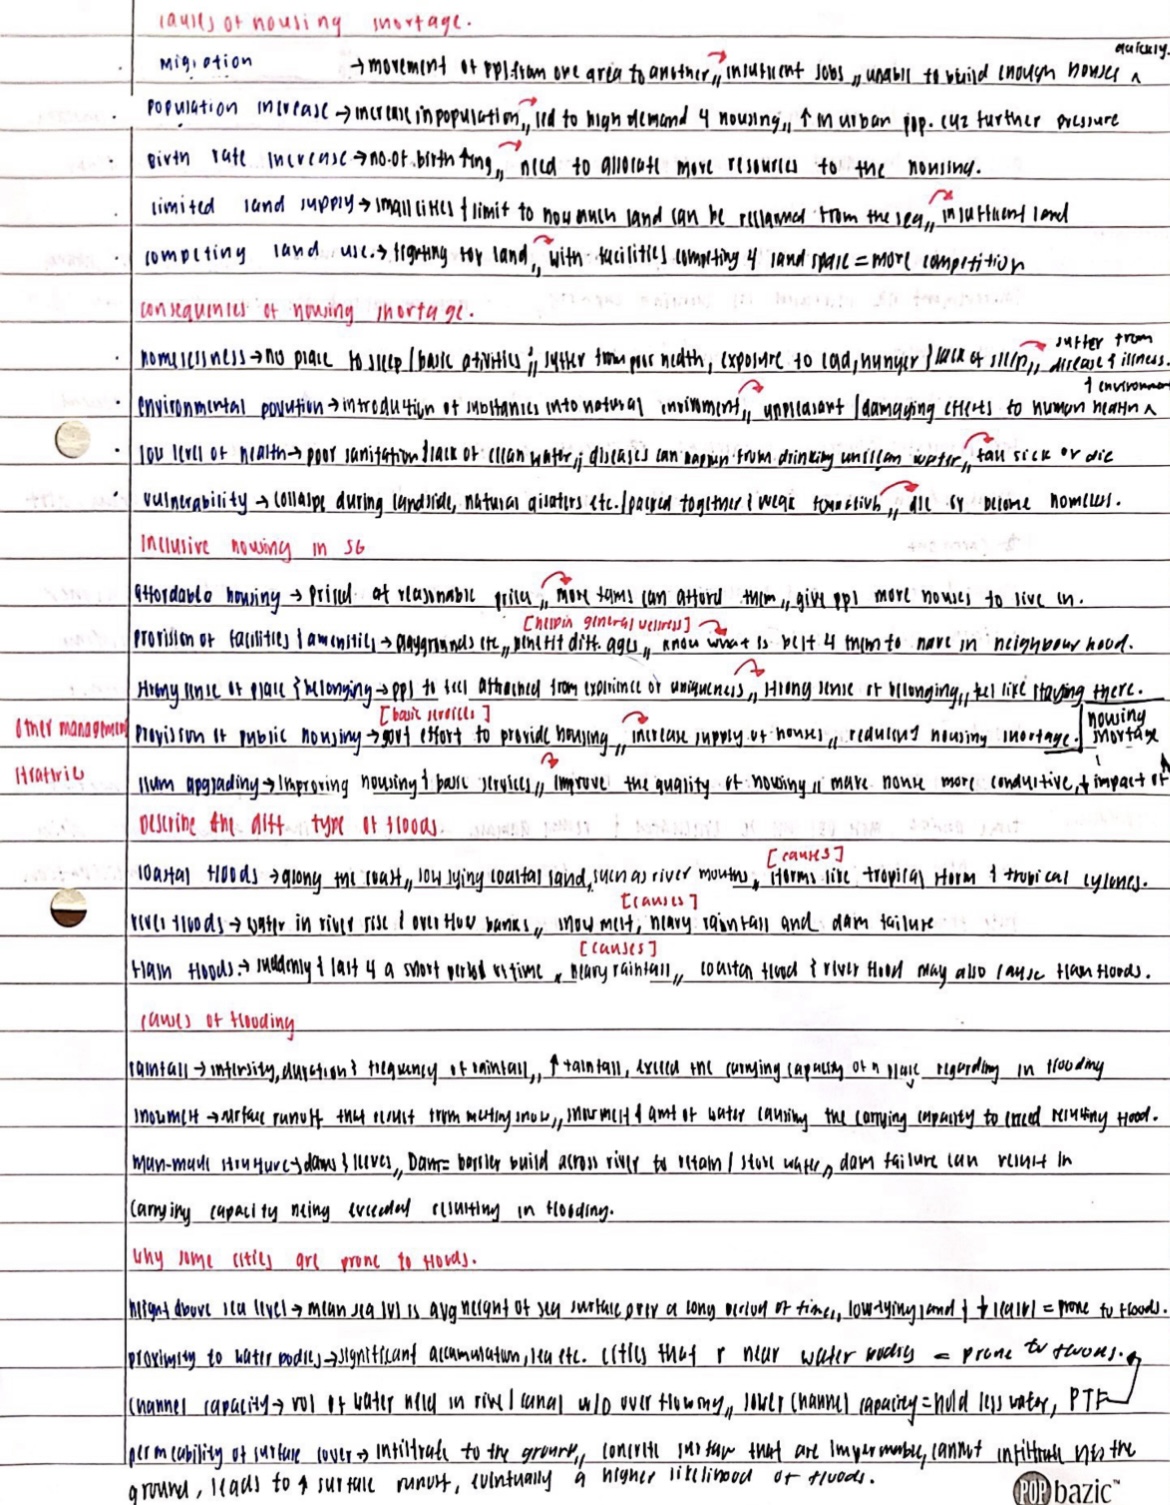 causes of housing shortage.
migration → movement of ppl from one area to another,, insufficient jobs ,, unable to build enough houses ^ quickly.
population increase → increase in population,, led to high demand 4 housing,, ↑ in urban pop. cuz further pressure
birth rate increase → no. of birth ↑ing,, need to allocate more resources to the housing.
limited land supply → small cities & limit to how much land can be reclaimed from the sea,, insufficient land
competing land use. → fighting for land,, with facilities competing 4 land space = more competition
consequences of housing shortage.
homelessness → no place to sleep / basic ativities ,, suffer from poor health, exposure to cold, hunger & lack of sleep,, suffer from disease & illness.
environmental povution → introduction of substances into natural environment,, unpleasant / damaging effects to human health ^ & environment
low level of health → poor sanitation & lack of clean water,, diseases can happen from drinking unclean water,, fall sick or die
vulnerability → collapse during landside, natural disaters etc. / packed together & weak ,, die or become homeless.
inclusive housing in SG
affordable housing → priced at reasonable prices,, more fams can afford them,, give ppl more houses to live in.
[help in general wellness]
provision of facilities & amenities → playgrounds etc,, benefit diff. ages,, know what is best 4 them to have in neighbourhood.
strong sense of place & belonging → ppl to feel attached from experience or uniqueness,, strong sense of belonging,, feel like staying there.
other management strategies
[basic services]
provision of public housing → govt effort to provide housing,, increase supply of houses,, reduces housing shortage.
slum upgrading → improving housing & basic services,, improve the quality of housing,, make house more conductive, ↓ impact of housing shortage
describe the diff type of floods.
[causes]
coastal floods → along the coast,, low lying coastal land, such as river mouths,, storms like tropical storm & tropical cylones.
[causes]
river floods → water in river rise & overflow banks,, snow melt, heavy rainfall and dam failure
[causes]
flash floods. → suddenly & last 4 a short period of time,, heavy rainfall,, coastal flood & river flood may also cause flash floods.
causes of flooding
rainfall → intensity, duration & frequency of rainfall,, ↑ rainfall, exceed the carrying capacity of a place regarding in flooding
snowmelt → surface runoff that result from melting snow,, snow melt & amt of water causing the carrying capacity to exceed resulting flood.
man-made structure → dams & levees,, Dam = barrier build across river to retain / store water,, dam failure can result in
carrying capacity being exceeded resulting in flooding.
why some cities are prone to floods.
height above sea level → mean sea lvl is avg height of sea surface over a long period of time,, low-lying land & ↓ sea lvl = prone to floods.
proximity to water bodies → significant accumulation, sea etc. cities that r near water bodies = prone to floods.
channel capacity → vol of water held in river / canal w/o over flowing,, lower channel capacity = hold less water, PTF
permeability of surface cover → infiltrate to the ground,, concrete surface that are impermeable, cannot infiltrate the
ground, leads to ↑ surface runoff, eventually a higher likelihood of floods.
POP bazic™